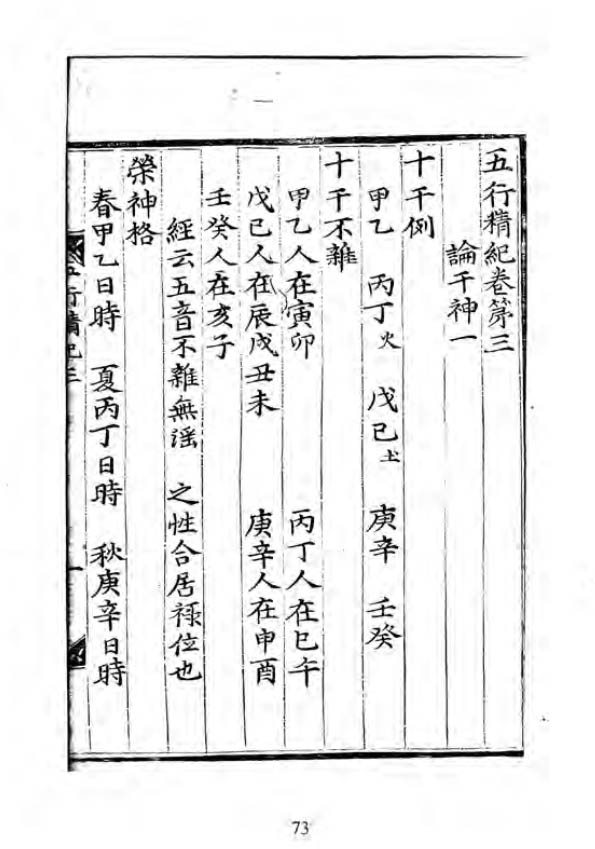 五行精紀卷第三
論干神一
十干例
甲乙 丙丁火 戊己土 庚辛 壬癸
十干不雜
甲乙人在寅卯 丙丁人在巳午
戊己人在辰戌丑未 庚辛人在申酉
壬癸人在亥子
經云五音不雜無滛 之性合居禄位也
榮神格
春甲乙日時 夏丙丁日時 秋庚辛日時
五行精紀三
一
73